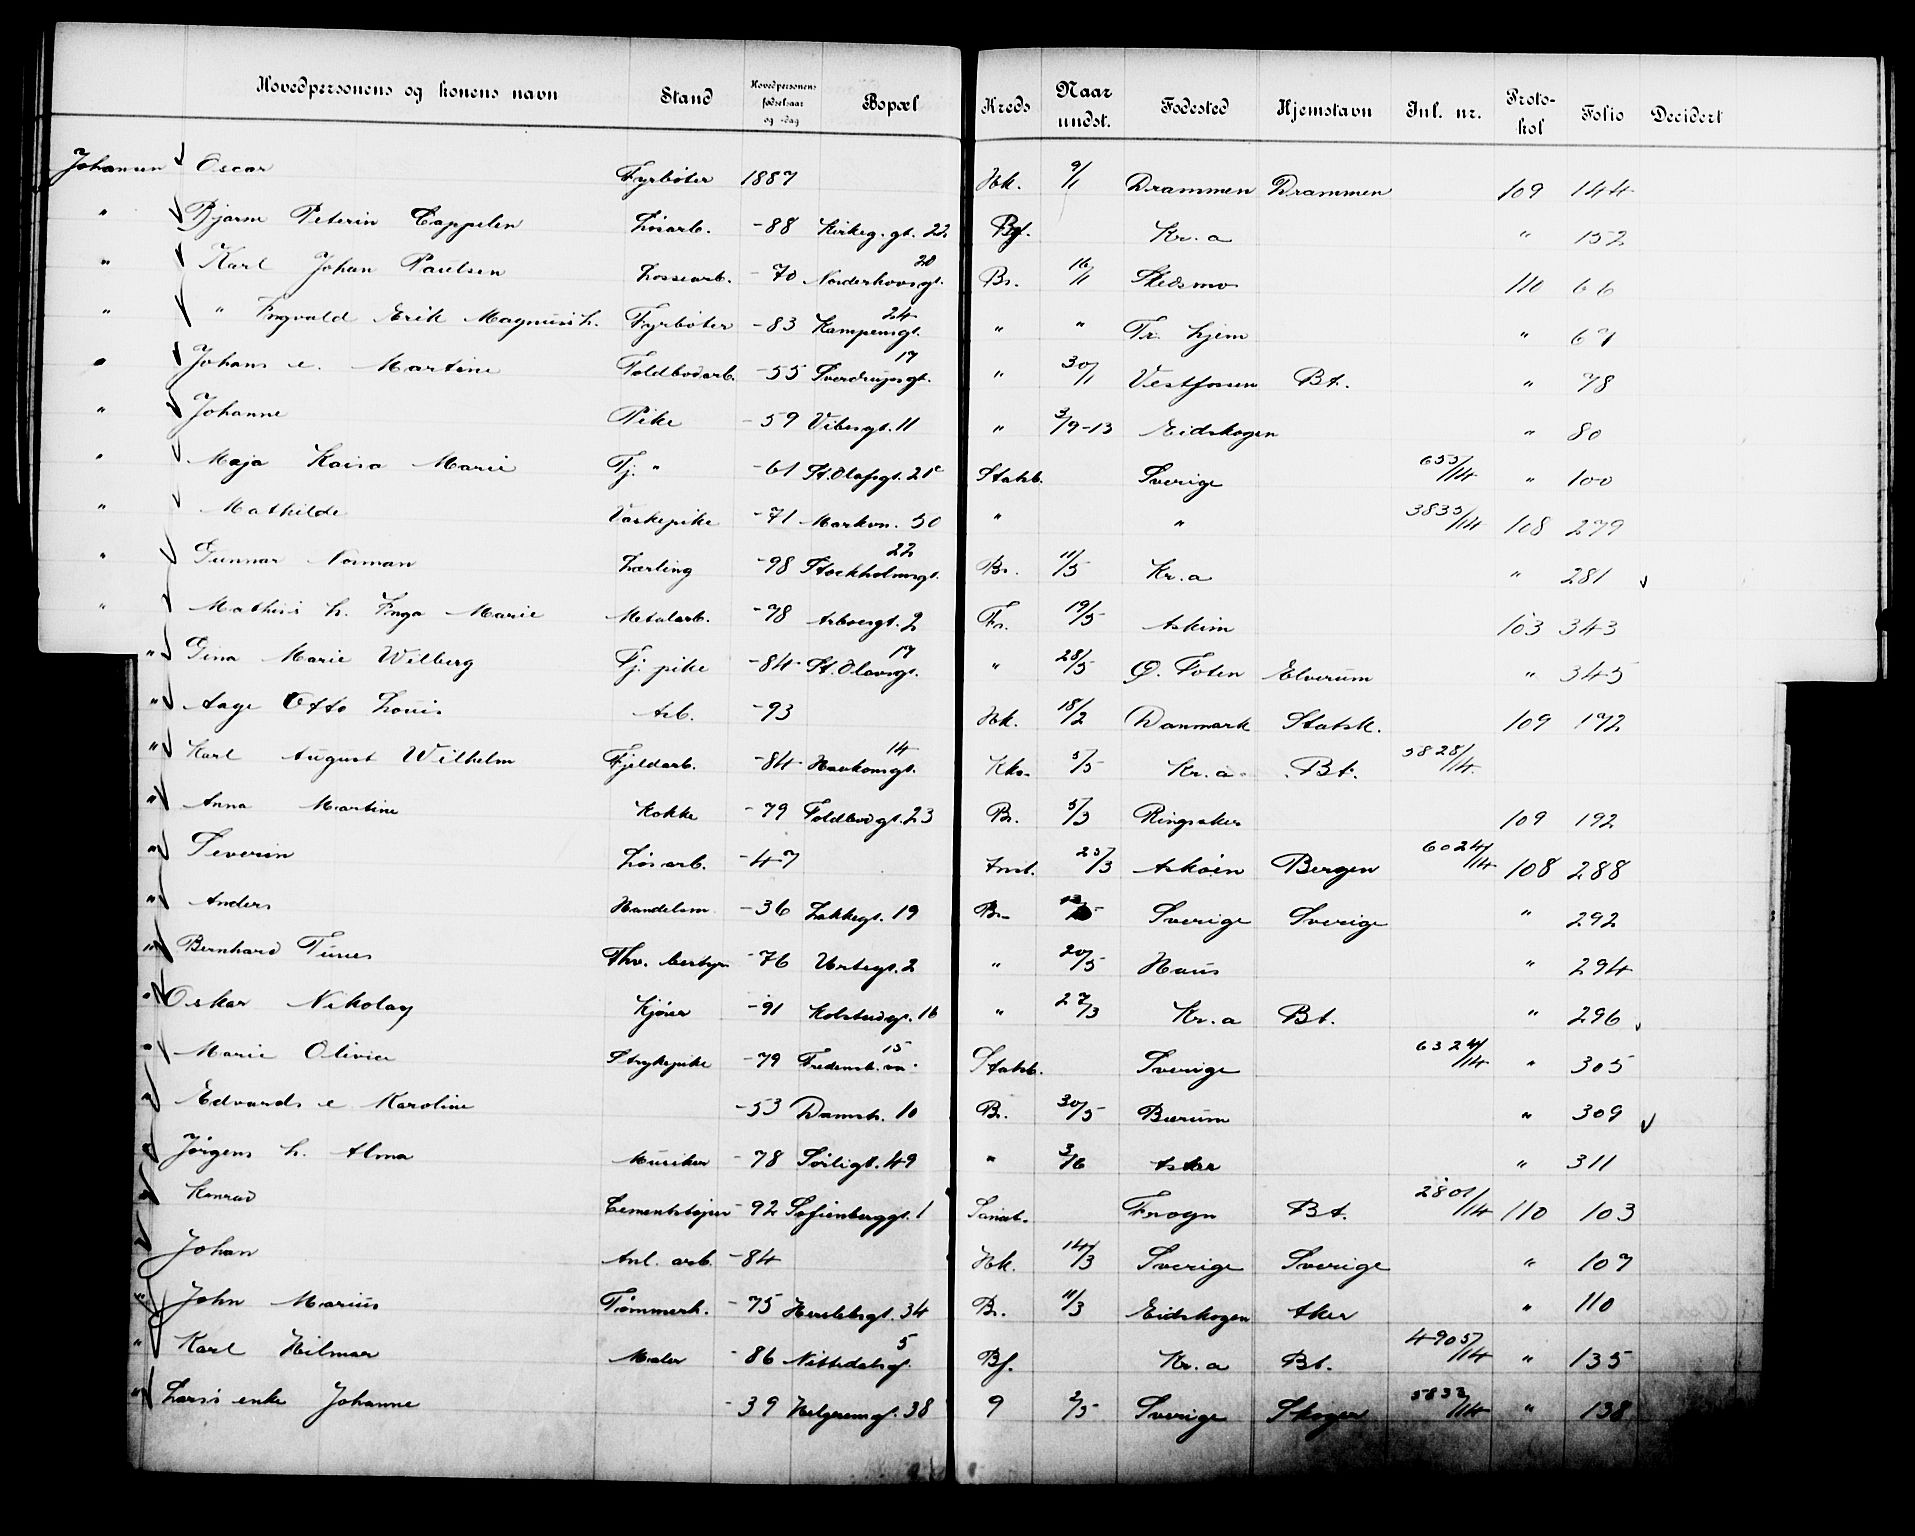 Hovedpersonens og konens navn | Stand | Hovedpersonens fødselsaar og -dag | Bopæl | Kreds | Naar undst. | Fødested | Hjemstavn | Inl. nr. | Protokol | Folio | Decidert
Johansen Oscar | Fyrbøter | 1887 | | Hk. | 9/1 | Drammen | Drammen | | 109 | 144
" Bjarne Peterin Cappelen | Løsarb. | -88 | Kirkeg. gt. 22 | Bf. | | Kr.a | | | " | 152
" Karl Johan Paulsen | Lossearb. | -70 | Norderhovsgt. 20 | Br. | 16/1 | Skedsmo | | | 110 | 66
" " Ingvald Erik Magnus's h. | Fyrbøter | -83 | Kampensgt. 24 | " | " | Tr. hjem | | | " | 67
" Johans e. Martine | Toldbodarb. | -55 | Sverdrupsgt. 17 | " | 30/1 | Vestfossen | Bt. | | " | 78
" Johanne | Pike | -59 | Vibesgt. 11 | " | 3/9-13 | Eidskogen | | | " | 80
" Maja Kaisa Marie | Tj. " | -61 | St. Olafsgt. 21c | Statsb. | | Sverige | | 655/14 | " | 100
" Mathilde | Vaskepike | -71 | Markvn. 50 | " | | " | | 3835/14 | 108 | 279
" Gunnar Norman | Lærling | -98 | Stockholmsgt. 22 | Br. | 11/5 | Kr.a | | | " | 281
" Mathis's h. Inga Marie | Metalarb. | -78 | Arboesgt. 2 | Fr. | 19/5 | Askim | | | 103 | 343
" Gina Marie Wilberg | Tj. pike | -84 | St. Olavsgt. 17 | " | 28/5 | Ø. Toten | Elverum | | " | 345
" Aage Otto Louis | Arb. | -93 | | Hk. | 18/2 | Danmark | Statsk. | | 109 | 172
" Karl August Wilhelm | Fjeldarb. | -84 | Havkomgt. 14 | Kka. | 5/5 | Kr.a. | Bt. | 5828/14
" Anna Martine | Kokke | -79 | Toldbodgt. 23 | Br. | 5/3 | Ringsaker | | | 109 | 192
" Severin | Løsarb. | -47 | | Anst. | 25/3 | Askøen | Bergen | 6024/14 | 108 | 288
" Anders | Handelsm. | -36 | Lakkegt. 19 | Br. | | Sverige | Sverige | | " | 292
" Bernhard Tunes | Thv. bestyr. | -76 | Urtegt. 2 | " | 20/5 | Haus | | | " | 294
" Oskar Nikolay | Kjører | -91 | Kolstadgt. 16 | " | 27/3 | Kr.a | Bt. | | " | 296
" Marie Olivia | Strykepike | -79 | Fredensb. vn. 15 | Statsb. | | Sverige | | 6324/14 | " | 305
" Edvards e Karoline | | -53 | Damstr. 10 | Br. | 30/5 | Bærum | | | " | 309
" Jørgens h. Alma | Musiker | -78 | Sørligt. 49 | " | 3/6 | Asker | | | " | 311
" Konrad | Cementstøper | -92 | Sofienberggt. 1 | Sanat. | | Frogn | Bt. | 2801/14 | 110 | 103
Johan | Anl. arb. | -84 | | Hk. | 14/3 | Sverige | Sverige | | " | 107
" John Marius | Tømmerh. | -75 | Herslebsgt. 34 | Br. | 11/3 | Eidskogen | Aker | | " | 110
" Karl Hilmar | Maler | -86 | Nittedalsgt. 5 | Bf. | | Kr.a | Bt. | 4905/14 | " | 135
" Lars's enke Johanne | | -39 | Helgesensgt. 38 | 9 | 2/5 | Sverige | Skoger | 5832/14 | " | 138